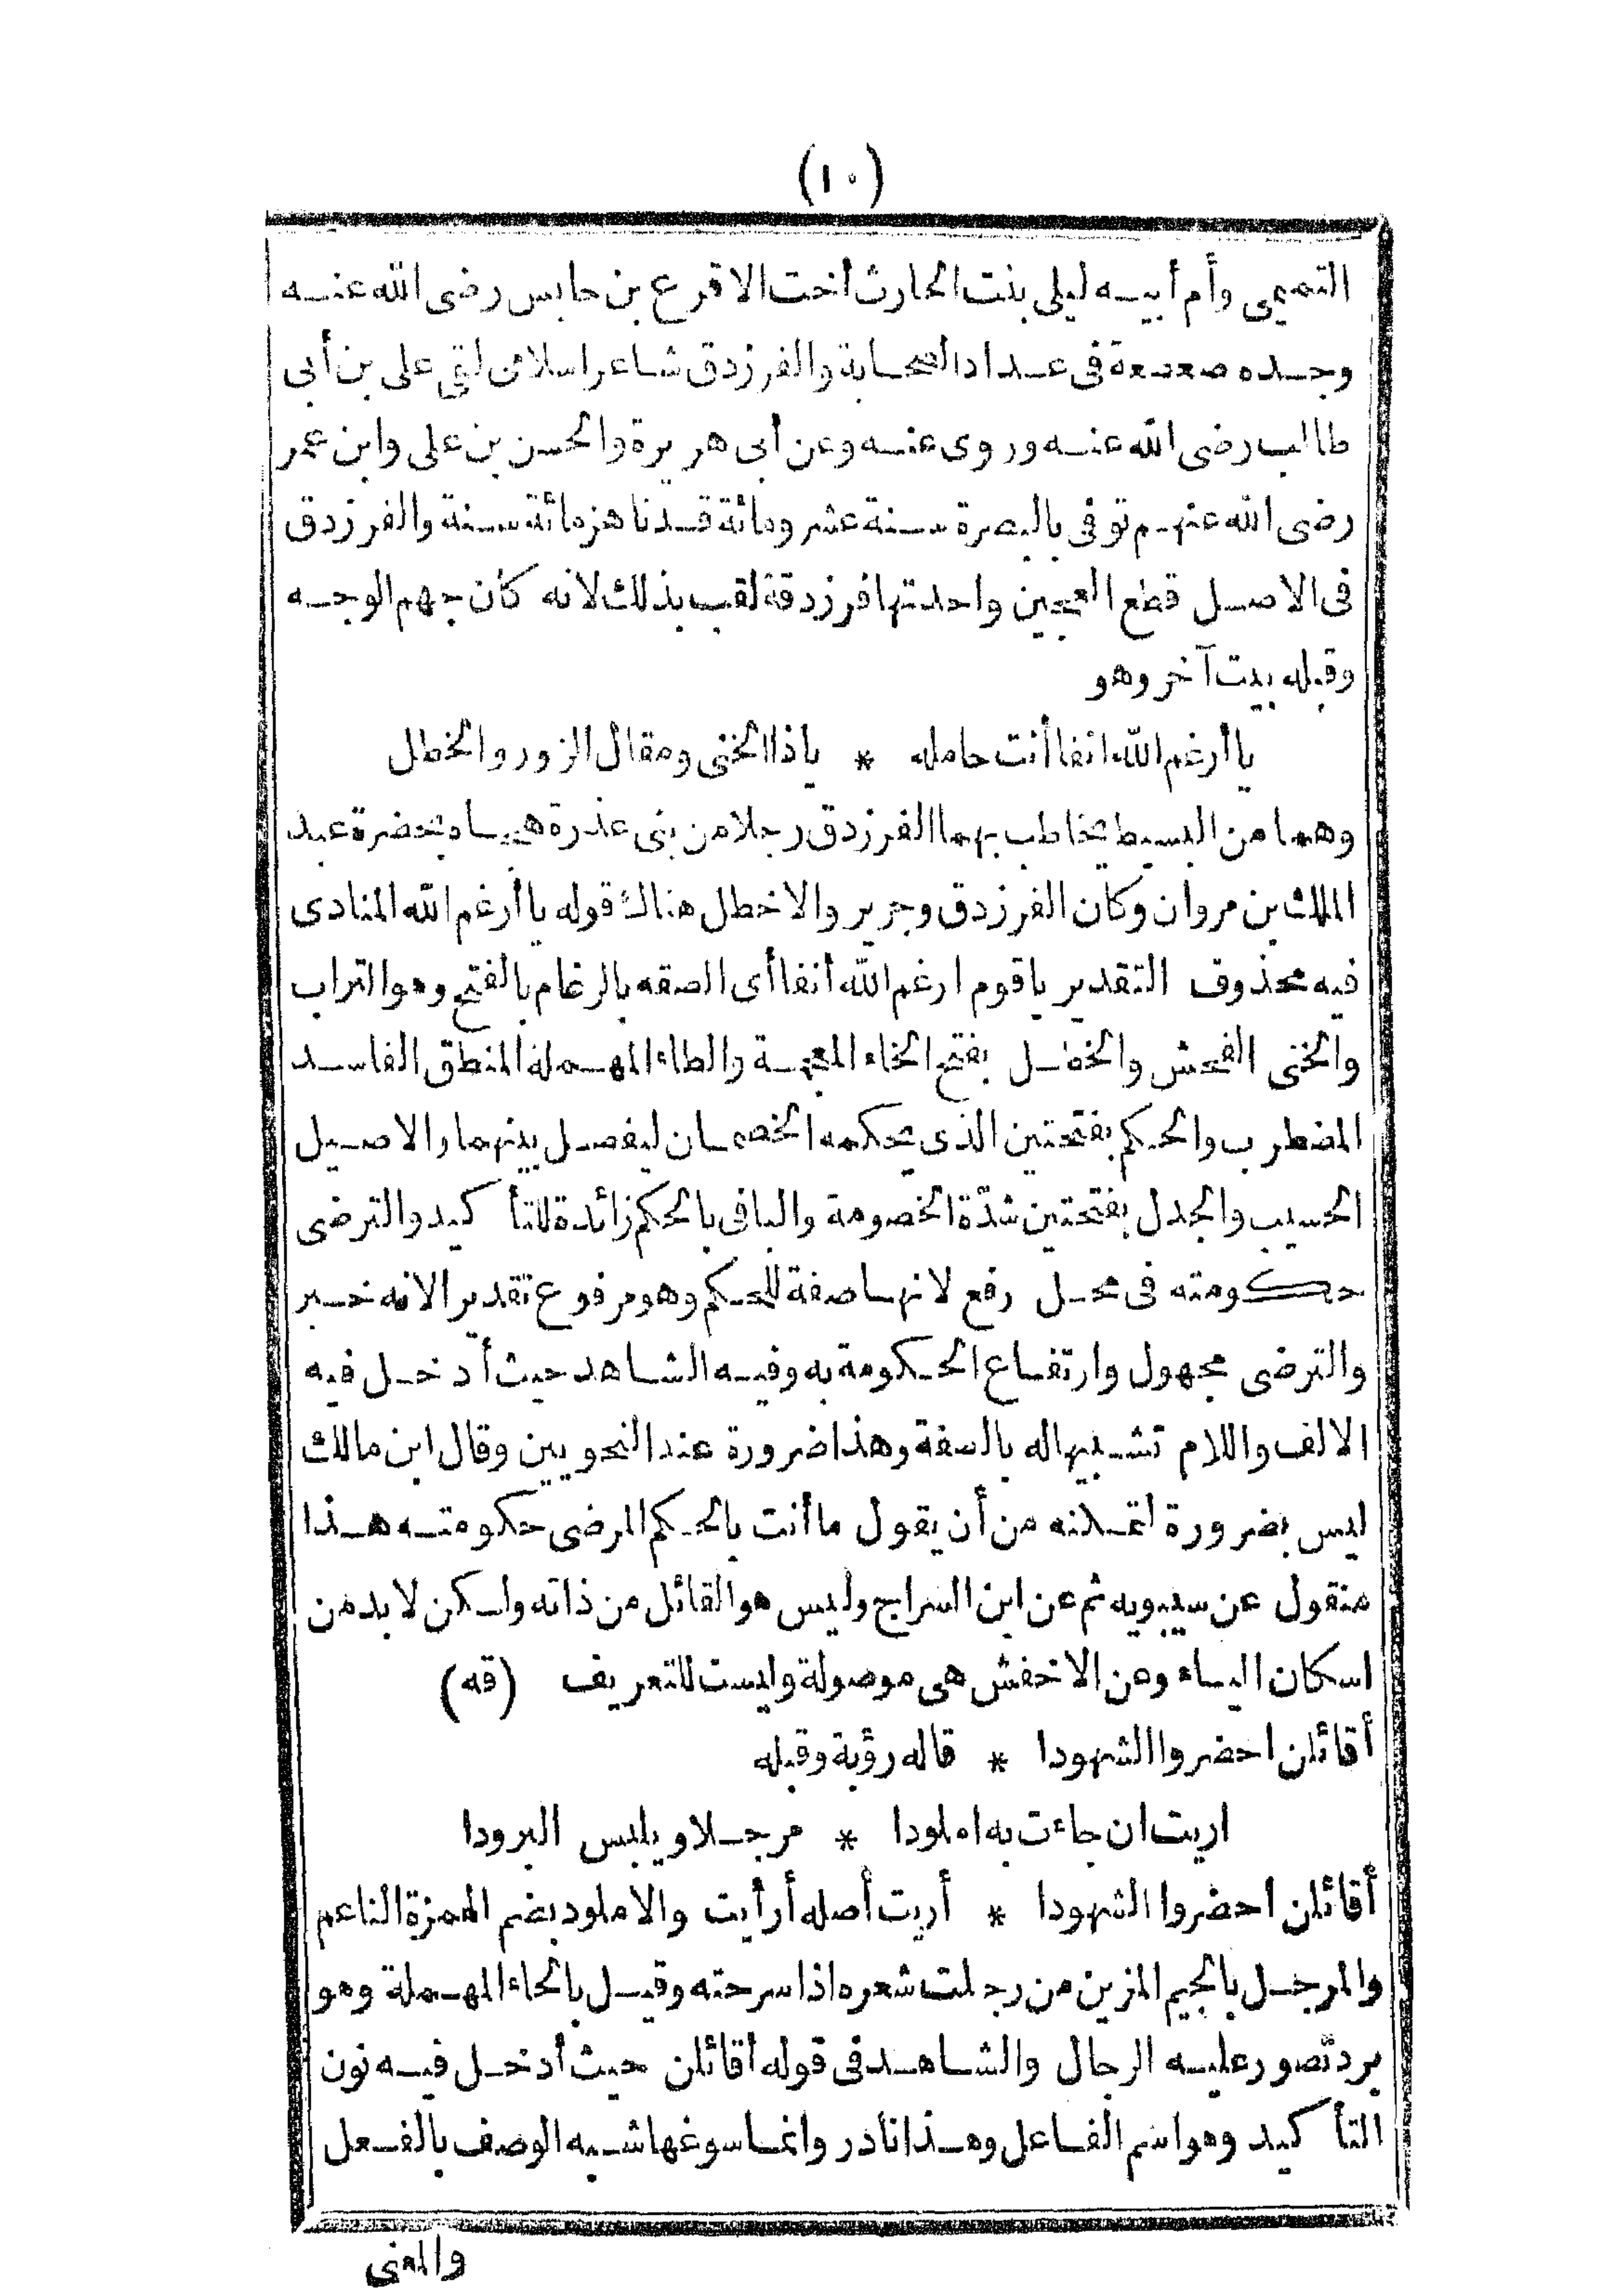 (١٠)
التميمى وأم أبيه ليلى بنت الحارث أخت الاقرع بن حابس رضى الله عنه
وجده صعصعة فى عداد الصحابة والفرزدق شاعر اسلامى لقى على بن أبى
طالب رضى الله عنه وروى عنه وعن أبى هريرة والحسن بن على وابن عمر
رضى الله عنهم توفى بالبصرة سنة عشر ومائة قد ناهز مائة سنة والفرزدق
فى الاصل قطع العجين واحدتها فرزدقة لقب بذلك لانه كان جهم الوجه
وقبله بيت آخر وهو
يا أرغم الله انفا أنت حامله * ياذا الخنى ومقال الزور والخطل
وهما من البسيط يخاطب بهما الفرزدق رجلا من بنى عذرة هجاه بحضرة عبد
الملك بن مروان وكان الفرزدق وجرير والاخطل هناك قوله يا أرغم الله المنادى
فيه محذوف التقدير ياقوم ارغم الله أنفا أى الصقه بالرغام بالفتح وهو التراب
والخنى الفحش والخطل بفتح الخاء المعجمة والطاء المهملة المنطق الفاسد
المضطرب والحكم بفتحتين الذى يحكمه الخصمان ليفصل بينهما والاصيل
الحسيب والجدل بفتحتين شدّة الخصومة والبا فى بالحكم زائدة للتأكيد والترضى
حكومته فى محل رفع لانها صفة للحكم وهو مرفوع تقديرا لانه خبر
والترضى مجهول وارتفاع الحكومة به وفيه الشاهد حيث أدخل فيه
الالف واللام تشبيها له بالصفة وهذا ضرورة عند النحويين وقال ابن مالك
ليس بضرورة لتمكنه من أن يقول ما أنت بالحكم المرضى حكومته هذا
منقول عن سيبويه ثم عن ابن السراج وليس هو القائل من ذاته ولكن لا بد من
اسكان الياء وعن الاخفش هى موصولة وليست للتعريف (قه)
أقائلن احضروا الشهودا * قاله رؤبة وقبله
اريت ان جاءت به املودا * مرجلا ويلبس البرودا
أقائلن احضروا الشهودا * أريت أصله أرأيت والاملود بضم الهمزة الناعم
والمرجل بالجيم المزين من رجلت شعره اذا سرحته وقيل بالحاء المهملة وهو
برد تصور عليه الرحال والشاهد فى قوله أقائلن حيث أدخل فيه نون
التأكيد وهو اسم الفاعل وهذا نادر وانما سوغها شبه الوصف بالفعل
والمعنى